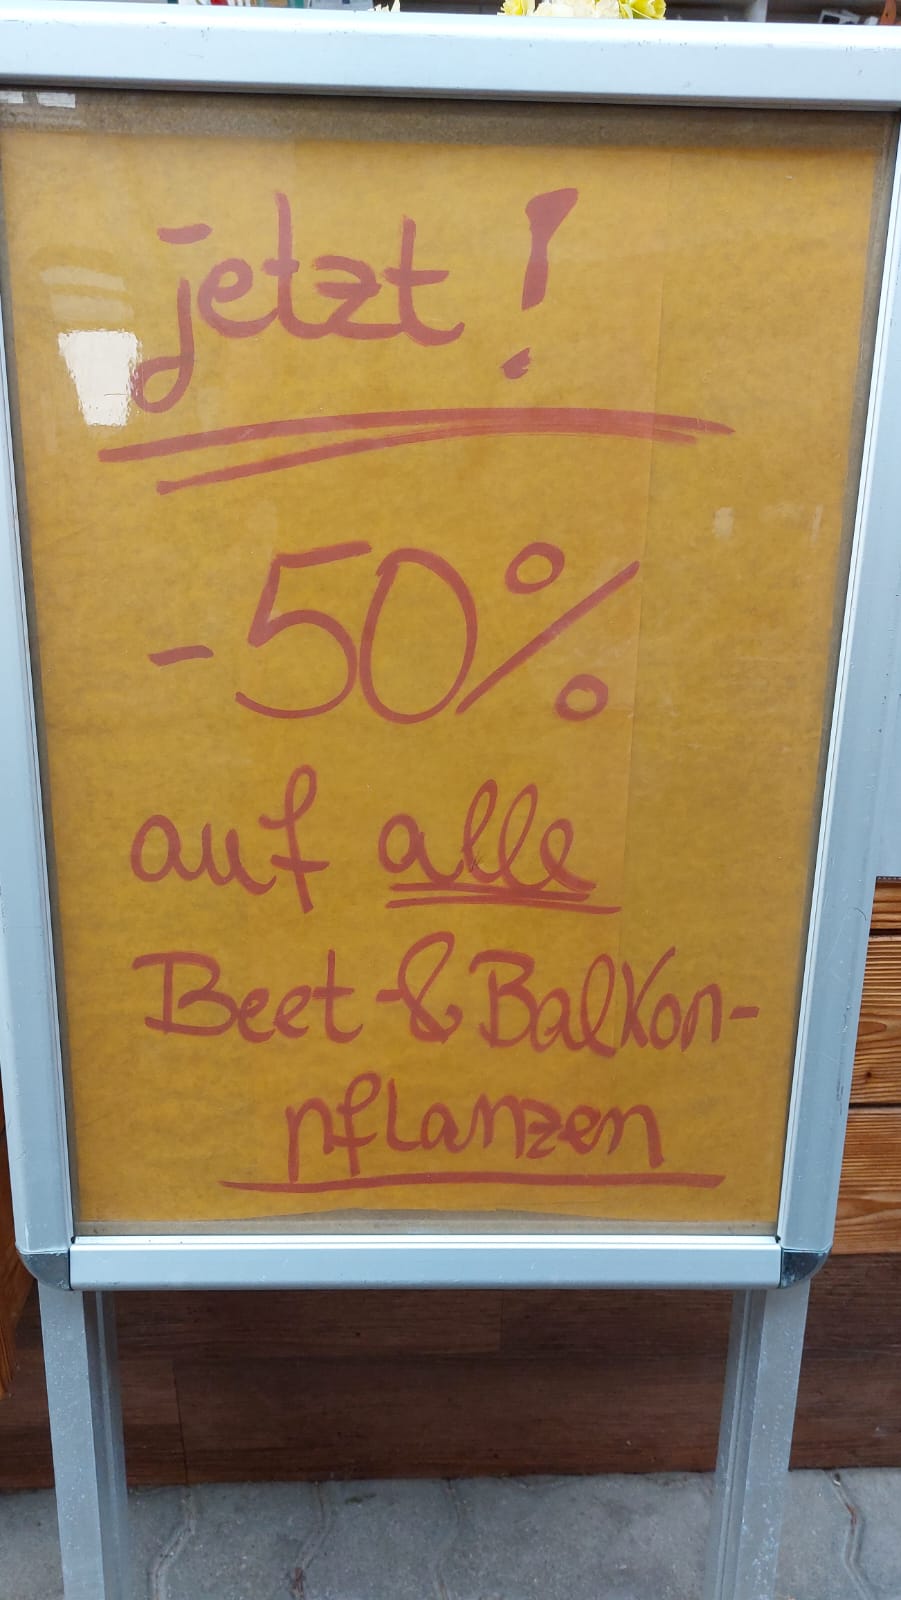 jetzt!
-50%
auf alle
Beet-& Balkon-
pflanzen